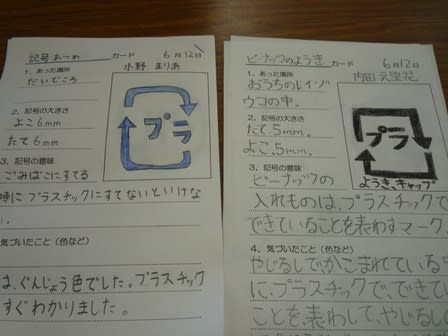 記号あつめ カード 6月12日
水野 まりあ
1. あった場所
だいどころ
2. 記号の大きさ
よこ6mm
たて6mm
プラ
3. 記号の意味
ごみばこにすてる
時に プラスチックにすてないといけな
い。
4. 気づいたこと(色など)
は、ぐんじょう色でした。プラスチック
すぐわかりました。
ピーナッツのようき カード 6月12日
1. あった場所
内田
おうちのレイゾ
ウコの中。
2. 記号の大きさ
たて、5mm。
よこ、5mm。
プラ
ようき、キャップ
3. 記号の意味
ピーナッツの
入れものは、プラスチックで
できていることを表わすマーク。
4. 気づいたこと(色など)
やじるしでかこまれている
に、プラスチックで、できてい
ことを表わして、やじるし